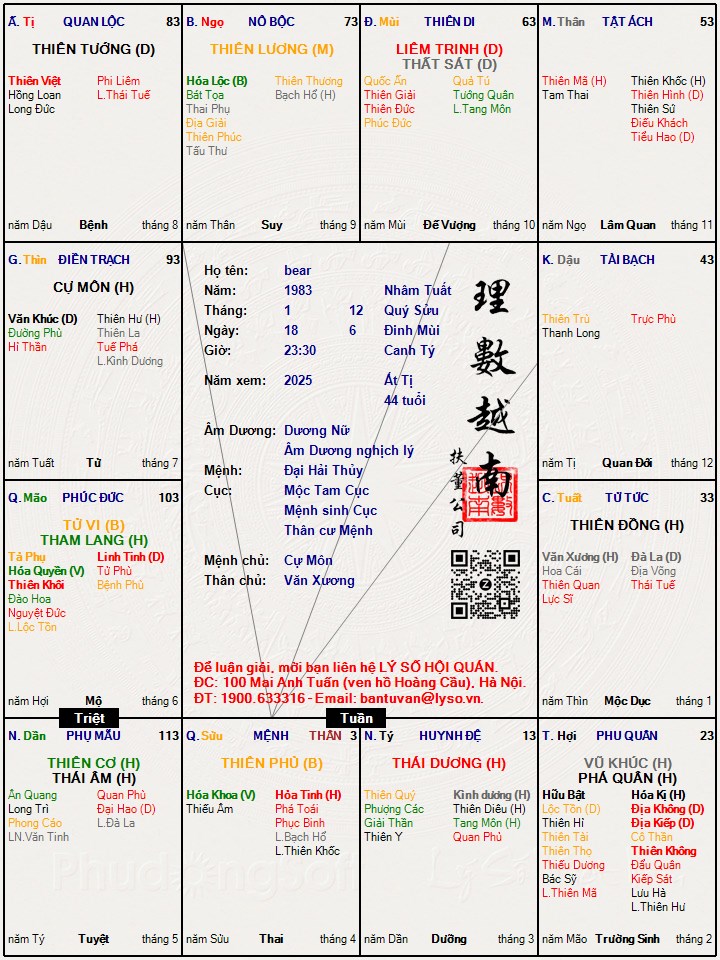 Ấ. Tị QUAN LỘC 83
THIÊN TƯỚNG (D)
Thiên Việt Phi Liêm
Hồng Loan L.Thái Tuế
Long Đức
năm Dậu Bệnh tháng 8
B. Ngọ NÔ BỘC 73
THIÊN LƯƠNG (M)
Hóa Lộc (B) Thiên Thương
Bát Tọa Bạch Hổ (H)
Thai Phụ
Địa Giải
Thiên Phúc
Tấu Thư
năm Thân Suy tháng 9
Đ. Mùi THIÊN DI 63
LIÊM TRINH (D)
THẤT SÁT (D)
Quốc Ấn Quả Tú
Thiên Giải Tướng Quân
Thiên Đức L.Tang Môn
Phúc Đức
năm Mùi Đế Vượng tháng 10
M. Thân TẬT ÁCH 53
Thiên Mã (H) Thiên Khốc (H)
Tam Thai Thiên Hình (D)
Thiên Sứ
Điếu Khách
Tiểu Hao (D)
năm Ngọ Lâm Quan tháng 11
G. Thìn ĐIỀN TRẠCH 93
CỰ MÔN (H)
Văn Khúc (D) Thiên Hư (H)
Đường Phù Thiên La
Hỉ Thần Tuế Phá
L.Kình Dương
năm Tuất Tử tháng 7
Họ tên: bear
Năm: 1983 Nhâm Tuất
Tháng: 1 12 Quý Sửu
Ngày: 18 6 Đinh Mùi
Giờ: 23:30 Canh Tý
Năm xem: 2025 Ất Tị
44 tuổi
Âm Dương: Dương Nữ
Âm Dương nghịch lý
Mệnh: Đại Hải Thủy
Cục: Mộc Tam Cục
Mệnh sinh Cục
Thân cư Mệnh
Mệnh chủ: Cự Môn
Thân chủ: Văn Xương
理數越南
扶董公司
Để luận giải, mời bạn liên hệ LÝ SỐ HỘI QUÁN.
ĐC: 100 Mai Anh Tuấn (ven hồ Hoàng Cầu), Hà Nội.
ĐT: 1900.633316 - Email: bantuvan@lyso.vn.
K. Dậu TÀI BẠCH 43
Thiên Trù Trực Phù
Thanh Long
năm Tị Quan Đới tháng 12
Q. Mão PHÚC ĐỨC 103
TỬ VI (B)
THAM LANG (H)
Tả Phụ Linh Tinh (D)
Hóa Quyền (V) Tử Phù
Thiên Khôi Bệnh Phù
Đào Hoa
Nguyệt Đức
L.Lộc Tồn
năm Hợi Mộ tháng 6
C. Tuất TỬ TỨC 33
THIÊN ĐỒNG (H)
Văn Xương (H) Đà La (D)
Hoa Cái Địa Võng
Thiên Quan Thái Tuế
Lực Sĩ
năm Thìn Mộc Dục tháng 1
Triệt
Tuần
N. Dần PHỤ MẪU 113
THIÊN CƠ (H)
THÁI ÂM (H)
Ân Quang Quan Phù
Long Trì Đại Hao (D)
Phong Cáo L.Đà La
LN.Văn Tinh
năm Tý Tuyệt tháng 5
Q. Sửu MỆNH THÂN 3
THIÊN PHỦ (B)
Hóa Khoa (V) Hỏa Tinh (H)
Thiếu Âm Phá Toái
Phục Binh
L.Bạch Hổ
L.Thiên Khốc
năm Sửu Thai tháng 4
N. Tý HUYNH ĐỆ 13
THÁI DƯƠNG (H)
Thiên Quý Kình dương (H)
Phượng Các Thiên Diêu (H)
Giải Thần Tang Môn (H)
Thiên Y Quan Phủ
năm Dần Dưỡng tháng 3
T. Hợi PHU QUÂN 23
VŨ KHÚC (H)
PHÁ QUÂN (H)
Hữu Bật Hóa Kị (H)
Lộc Tồn (D) Địa Không (D)
Thiên Hỉ Địa Kiếp (D)
Thiên Tài Cô Thần
Thiên Thọ Thiên Không
Thiếu Dương Đẩu Quân
Bác Sỹ Kiếp Sát
L.Thiên Mã Lưu Hà
L.Thiên Hư
năm Mão Trường Sinh tháng 2